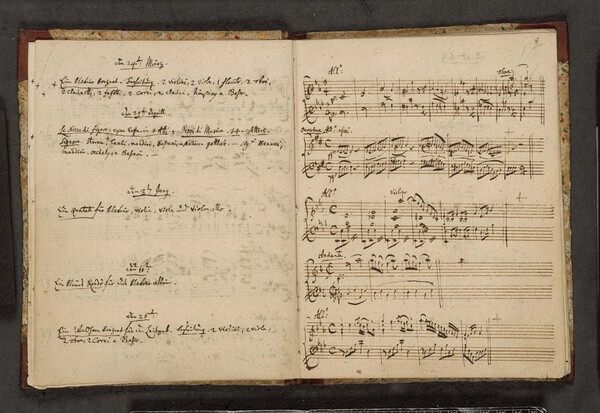 Den 24ten März.
Ein klavier konzert. Begleitung. 2 violini, 2 viole, 1 flauto, 2 oboe,
2 clarinetti, 2 fagotti, 2 corni, 2 clarini, timpany e Basso.
Den 29ten April
le Nozze di figaro. opera buffa. in 4 Atti. Pezzi di Musica. 34. Attori.
Signore. Storace, laschi, mandini, Bussani, e Nanina gottlieb. — Sigri Benucci,
mandini, occhely, e Bussani. —
Den 3ten Juny.
Ein quartett für klavier, violin, viola und Violoncello.
Den 10ten
Ein kleines Rondò für das klavier allein.
Den 26ten
Ein Waldhorn konzert für den leitgeb. begleitung. 2 violini, 2 viole,
2 oboe, 2 Corni e Basso.
Allo.
oboe
overtura Allo. assai.
Allo.
violino
Andante.
Allo.